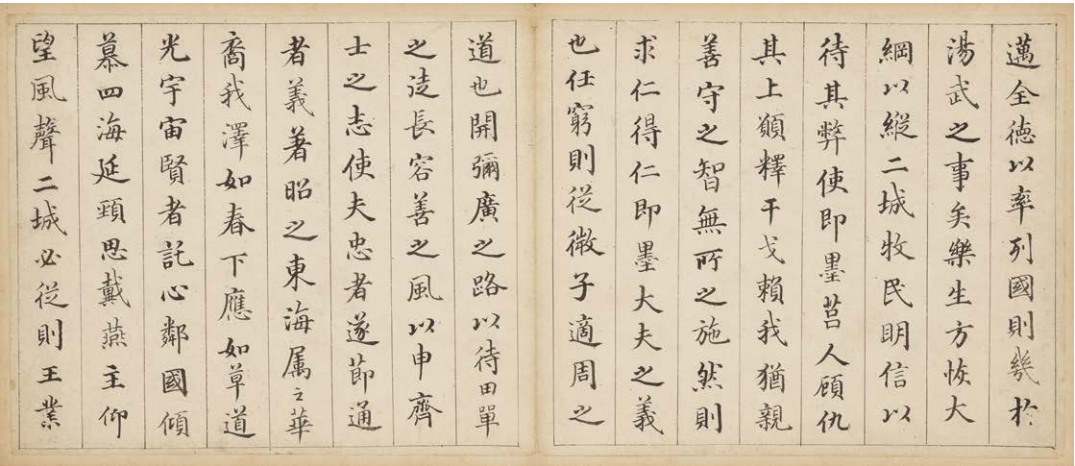 邁全徳以率列國則幾於
湯武之事矣樂生方恢大
綱以縱二城牧民明信以
待其弊使即墨莒人顧仇
其上願釋干戈賴我猶親
善守之智無所之施然則
求仁得仁即墨大夫之義
也任窮則從微子適周之
道也開彌廣之路以待田單
之徒長容善之風以申齊
士之志使夫忠者遂節通
者義著昭之東海属之華
裔我澤如春下應如草道
光宇宙賢者託心鄰國傾
慕四海延頸思戴燕主仰
望風聲二城必從則王業